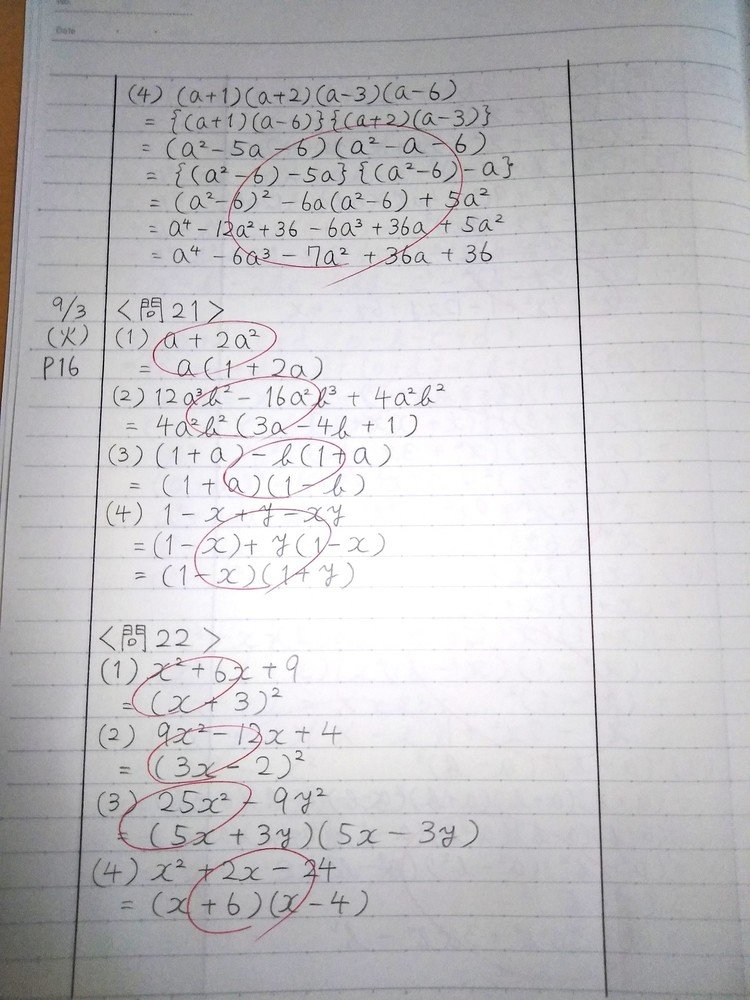 No.
Date
(4) (a+1)(a+2)(a-3)(a-6)
= {(a+1)(a-6)}{(a+2)(a-3)}
= (a²-5a-6)(a²-a-6)
= {(a²-6)-5a}{(a²-6)-a}
= (a²-6)² - 6a(a²-6) + 5a²
= a⁴ - 12a² + 36 - 6a³ + 36a + 5a²
= a⁴ - 6a³ - 7a² + 36a + 36
9/3 <問21>
(火) (1) a + 2a²
P16 = a(1 + 2a)
(2) 12a³b² - 16a²b³ + 4a²b²
= 4a²b²(3a - 4b + 1)
(3) (1+a) - b(1+a)
= (1+a)(1-b)
(4) 1 - x + y - xy
= (1-x) + y(1-x)
= (1-x)(1+y)
<問22>
(1) x² + 6x + 9
= (x + 3)²
(2) 9x² - 12x + 4
= (3x - 2)²
(3) 25x² - 9y²
= (5x + 3y)(5x - 3y)
(4) x² + 2x - 24
= (x + 6)(x - 4)